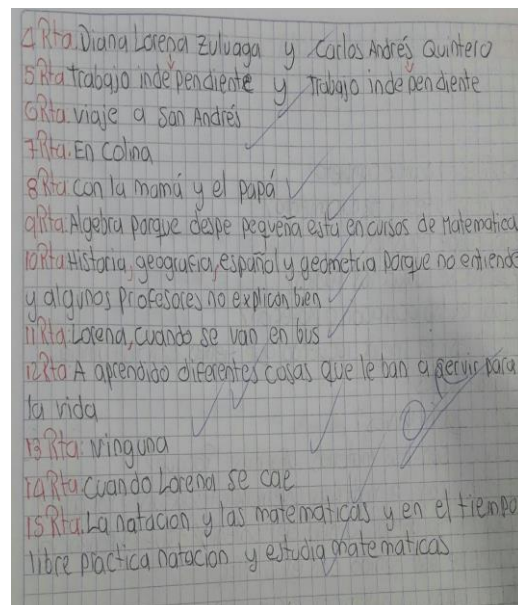 4 Rta. Diana Lorena Zuluaga y Carlos Andrés Quintero
5 Rta trabajo independiente y Trabajo independiente
6 Rta. viaje a San Andrés
7 Rta. En Colina
8 Rta con la mamá y el papá
9 Rta. Algebra porque despe pequeña esta en cursos de Matematica
10 Rta Historia, geografia, español y geometria porque no entiende
y algunos profesores no explican bien
11 Rta. Lorena, cuando se van en bus
12 Rta A aprendido diferentes cosas que le ban a servir para
la vida
13 Rta: Ninguna
14 Rta. cuando Lorena se cae
15 Rta. La natacion y las matematicas y en el tiempo
libre practica natacion y estudia matematicas